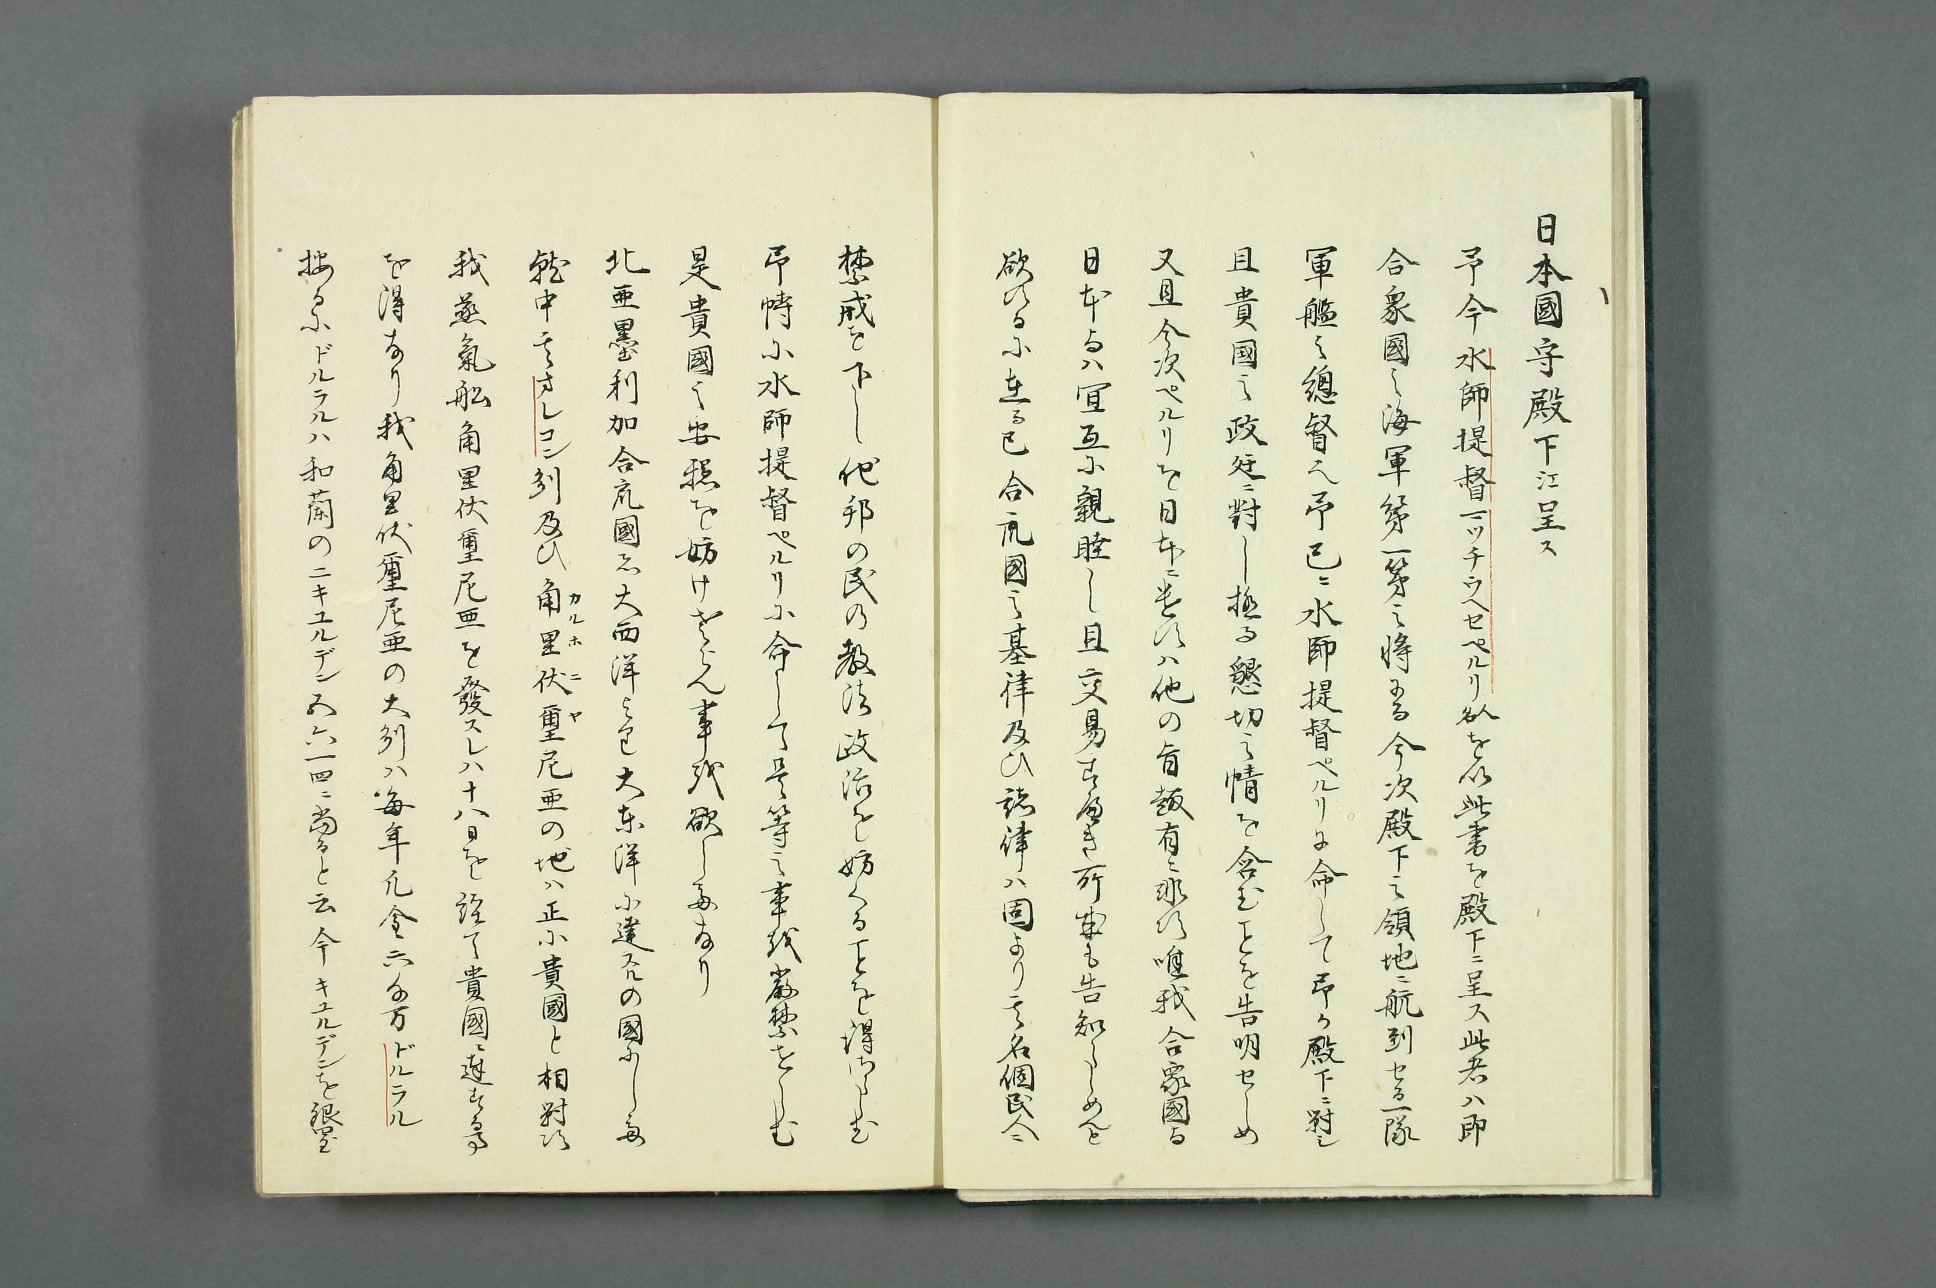 日本國守殿下江呈ス
予今水師提督マッチウヘセペルリ名人を以此書を殿下ニ呈ス此者ハ即
合衆國之海軍第一等之将にる今次殿下之領地ニ航到せる一隊
軍艦之總督也予已ニ水師提督ペルリに命して予か殿下ニ對し
且貴國之政廷ニ對し極る懇切之情を含むことを告明せしめ
又且今次ペルリを日本ニ遣ハ他の旨趣有ニ非次唯我合衆國与
日本与ハ宜互に親睦し且交易すへき所以も告知らしめんと
欲するに在る已合衆國之基律及ひ諸律ハ固より其名個民人ニ
禁戒を下し他邦の民の教法政治を妨くることを得さらしむ
予特に水師提督ペルリに命して是等之事を厳禁をしむ
是貴國之安穏を妨けさらん事を欲し那り
北亜墨利加合衆國ハ大西洋より大東洋に達スの國にし而
就中其オレコン列及ひ角里伏爾尼亜の地ハ正に貴國と相對次
カルホニヤ
我蒸氣船角里伏爾尼亜を發スレハ十八日を經て貴國ニ達する事
を得なり我角里伏爾尼亜の大列ハ毎年凡金六百万ドルラル
按るにドルラルハ和蘭のニキュルデン五六一四ニ当ると云今キュルデンを銀置